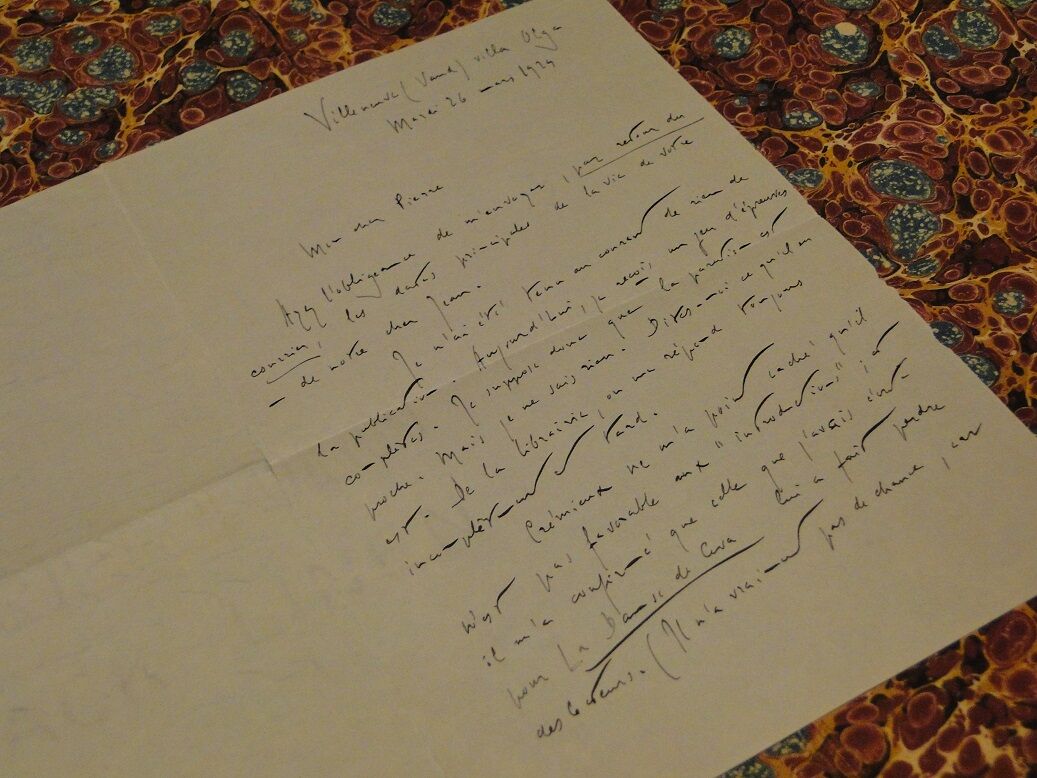 Villeneuve (Vaud) villa Olga
Mardi 26 mars 1929
Mon cher Pierre
Ayez l'obligeance de m'envoyer, par retour du
courrier, les dates principales de la vie de votre
– de notre cher Jean.
Je n'ai été tenu au courant de rien de
la publication. Aujourd'hui, je reçois un jeu d'épreuves
complètes. Je suppose donc que la parution est
proche. Mais je ne sais rien. Dites-moi ce qu'il en
est. De la librairie, on me répond toujours
incomplètement et tard.
Crémieux ne m'a point caché qu'il
n'est pas favorable aux "introductions" ; et
il m'a confirmé que celle que j'avais écrite
pour La Danse de Çiva lui a fait perdre
des lecteurs. (Il n'a vraiment pas de chance, car